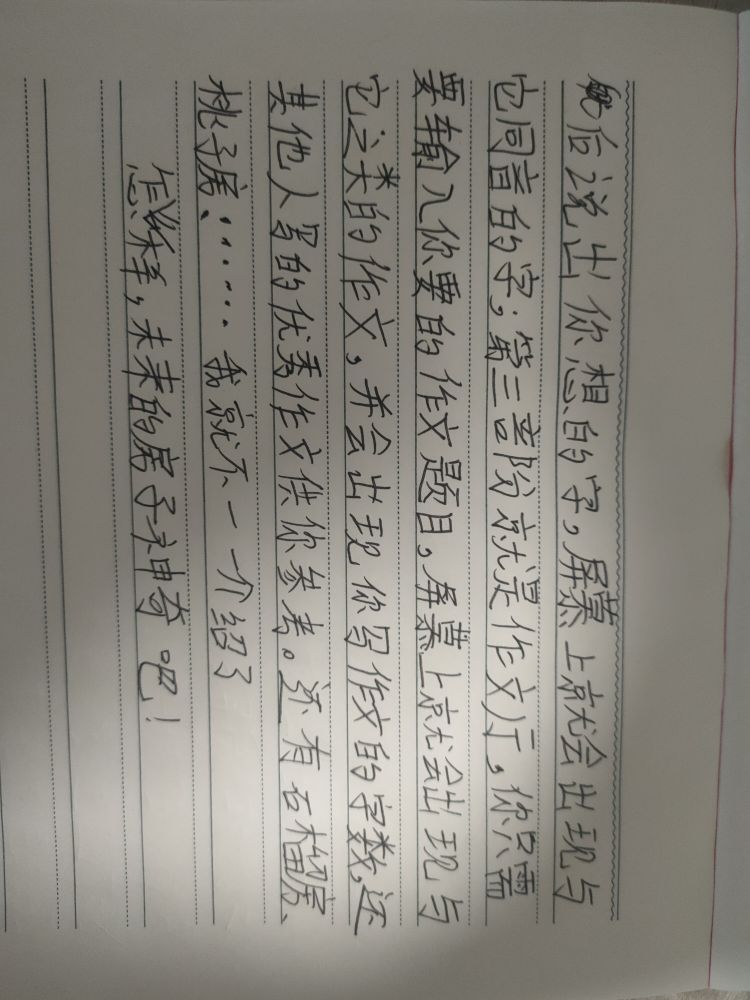 然后说出你想的字，屏幕上就会出现与
它同音的字；第三部分就是作文厅，你只需
要输入你要的作文题目，屏幕上就会出现与
它之类的作文，并会出现你写作文的字数，还
其他人写的优秀作文供你参考。还有石榴房、
桃子房、……我就不一一介绍了
怎么样，未来的房子神奇吧！